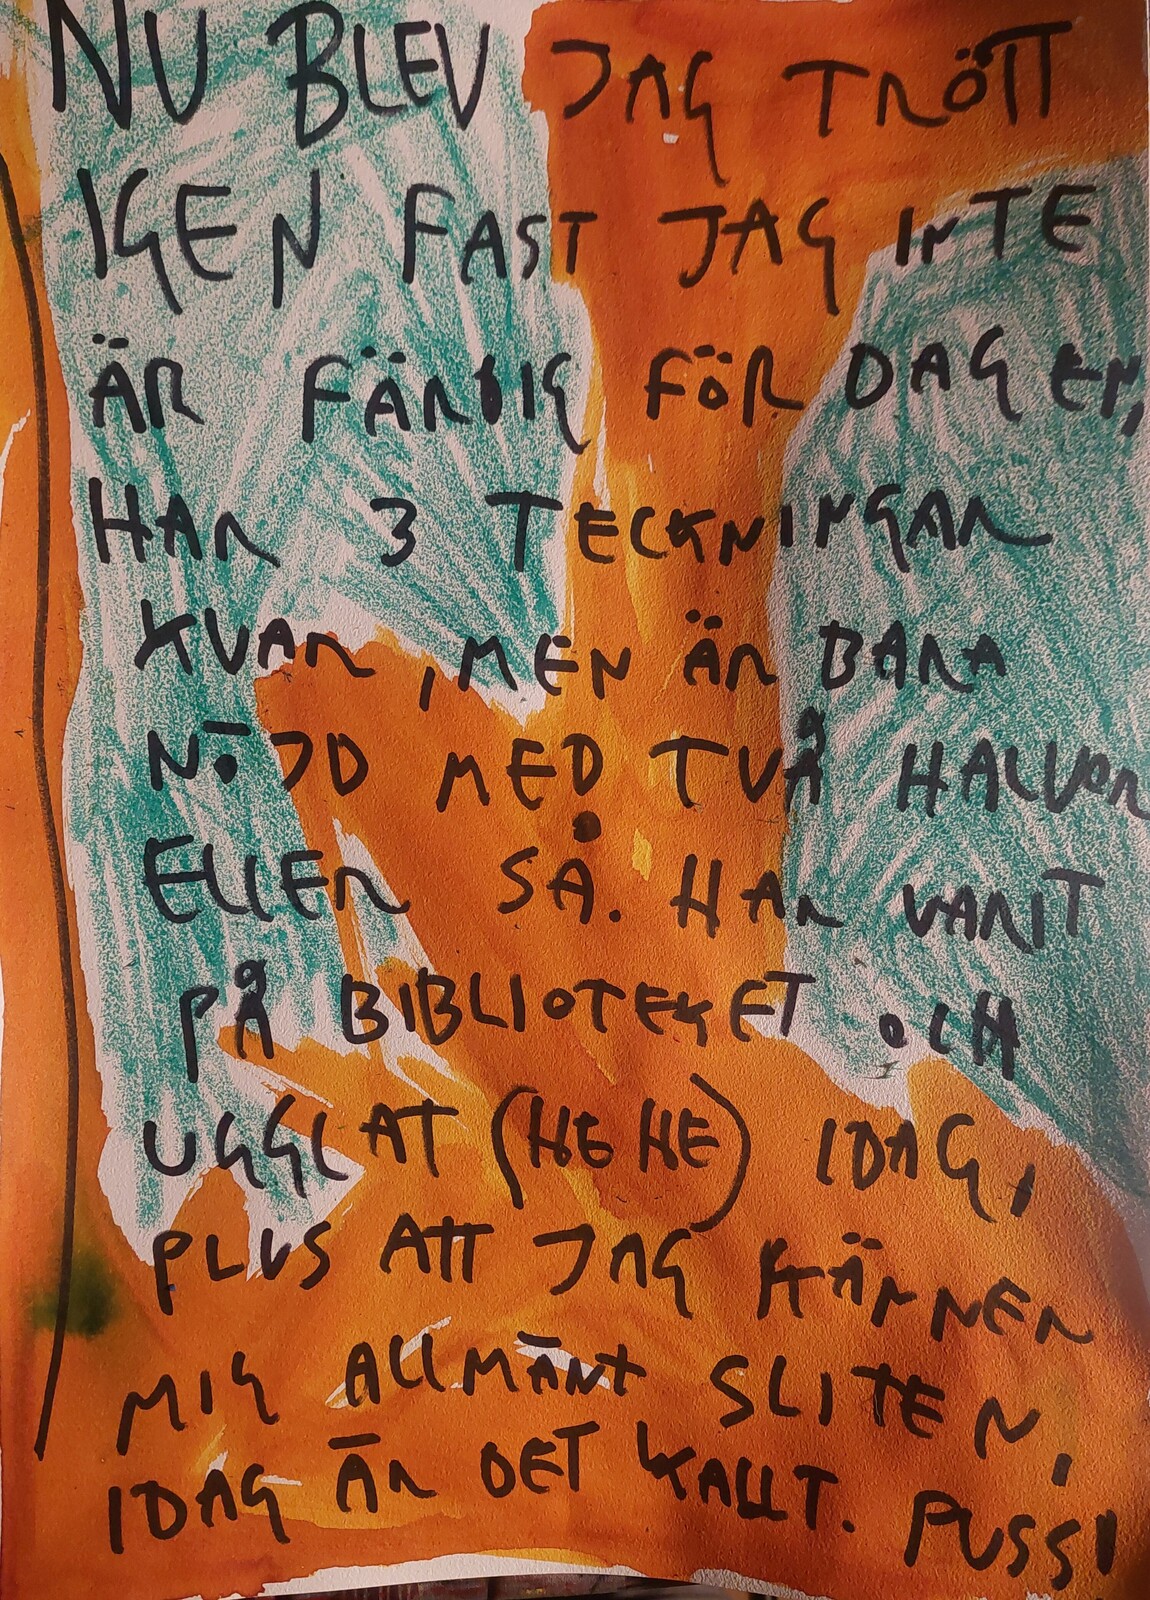 NU BLEV JAG TRÖTT
IGEN FAST JAG INTE
ÄR FÄRDIG FÖR DAGEN,
HAR 3 TECKNINGAR
KVAR, MEN ÄR BARA
NÖJD MED TVÅ HALVOR
ELLER SÅ. HAR VARIT
PÅ BIBLIOTEKET OCH
UGGLAT (HEHE) IDAG,
PLUS ATT JAG KÄNNER
MIG ALLMÄNT SLITEN,
IDAG ÄR DET KALLT. PUSS!